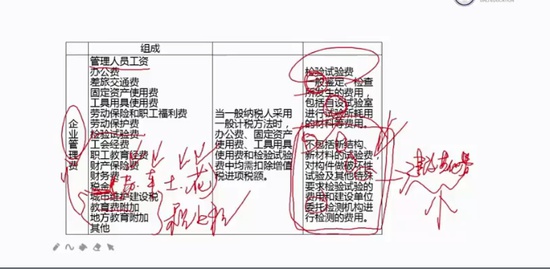 组成
企业管理费
管理人员工资
办公费
差旅交通费
固定资产使用费
工具用具使用费
劳动保险和职工福利费
劳动保护费
检验试验费
工会经费
职工教育经费
财产保险费
财务费
税金
城市维护建设税
教育费附加
地方教育附加
其他
当一般纳税人采用
一般计税方法时，
办公费、固定资产
使用费、工具用具
使用费和检验试验
费中均需扣除增值
税进项税额。
检验试验费
一般鉴定、检查
所发生的费用，
包括自设试验室
进行试验所耗用
的材料等费用。
不包括新结构、
新材料的试验费，
对构件做破坏性
试验及其他特殊
要求检验试验的
费用和建设单位
委托检测机构进
行检测的费用。
房 车 土 花